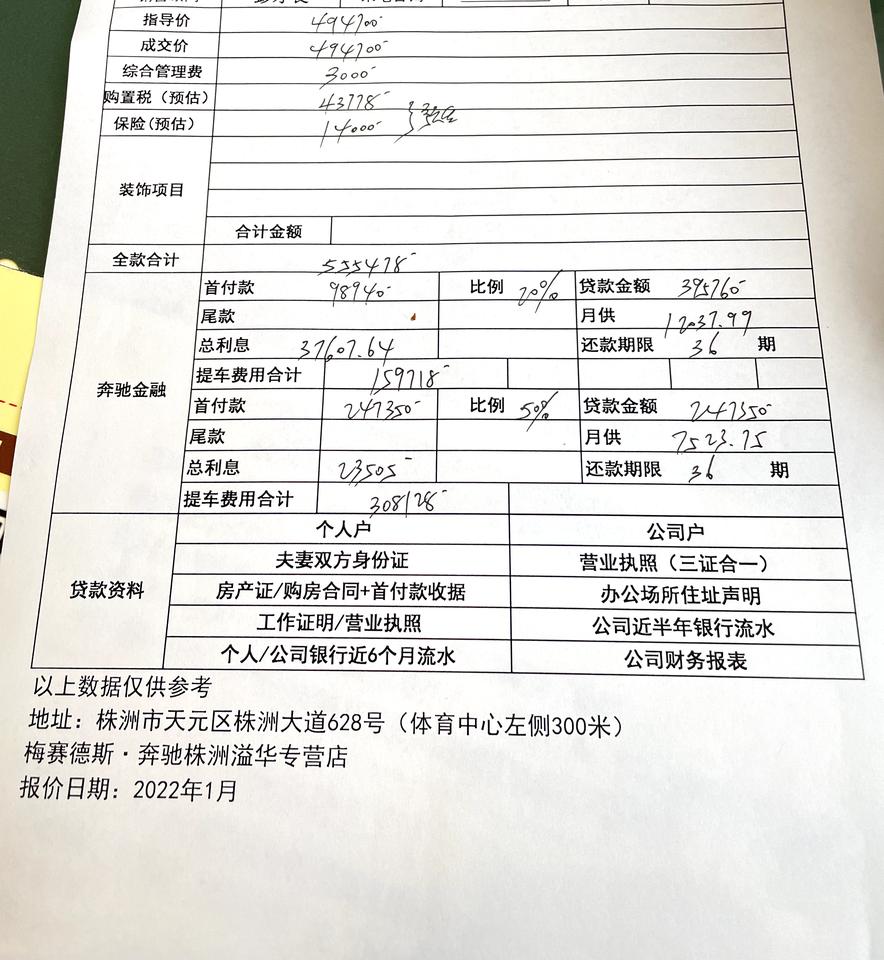 指导价 494700-
成交价 494700-
综合管理费 3000-
购置税（预估） 43778-
保险(预估) 14000-
装饰项目
合计金额
全款合计 555478-
奔驰金融
首付款 98940- 比例 20% 贷款金额 395760-
尾款 月供 12037.99
总利息 37607.64 还款期限 36 期
提车费用合计 159718-
首付款 247350- 比例 50% 贷款金额 247350-
尾款 月供 7523.75
总利息 23505- 还款期限 36 期
提车费用合计 308128-
贷款资料
个人户 公司户
夫妻双方身份证 营业执照（三证合一）
房产证/购房合同+首付款收据 办公场所住址声明
工作证明/营业执照 公司近半年银行流水
个人/公司银行近6个月流水 公司财务报表
以上数据仅供参考
地址：株洲市天元区株洲大道628号（体育中心左侧300米）
梅赛德斯·奔驰株洲溢华专营店
报价日期：2022年1月